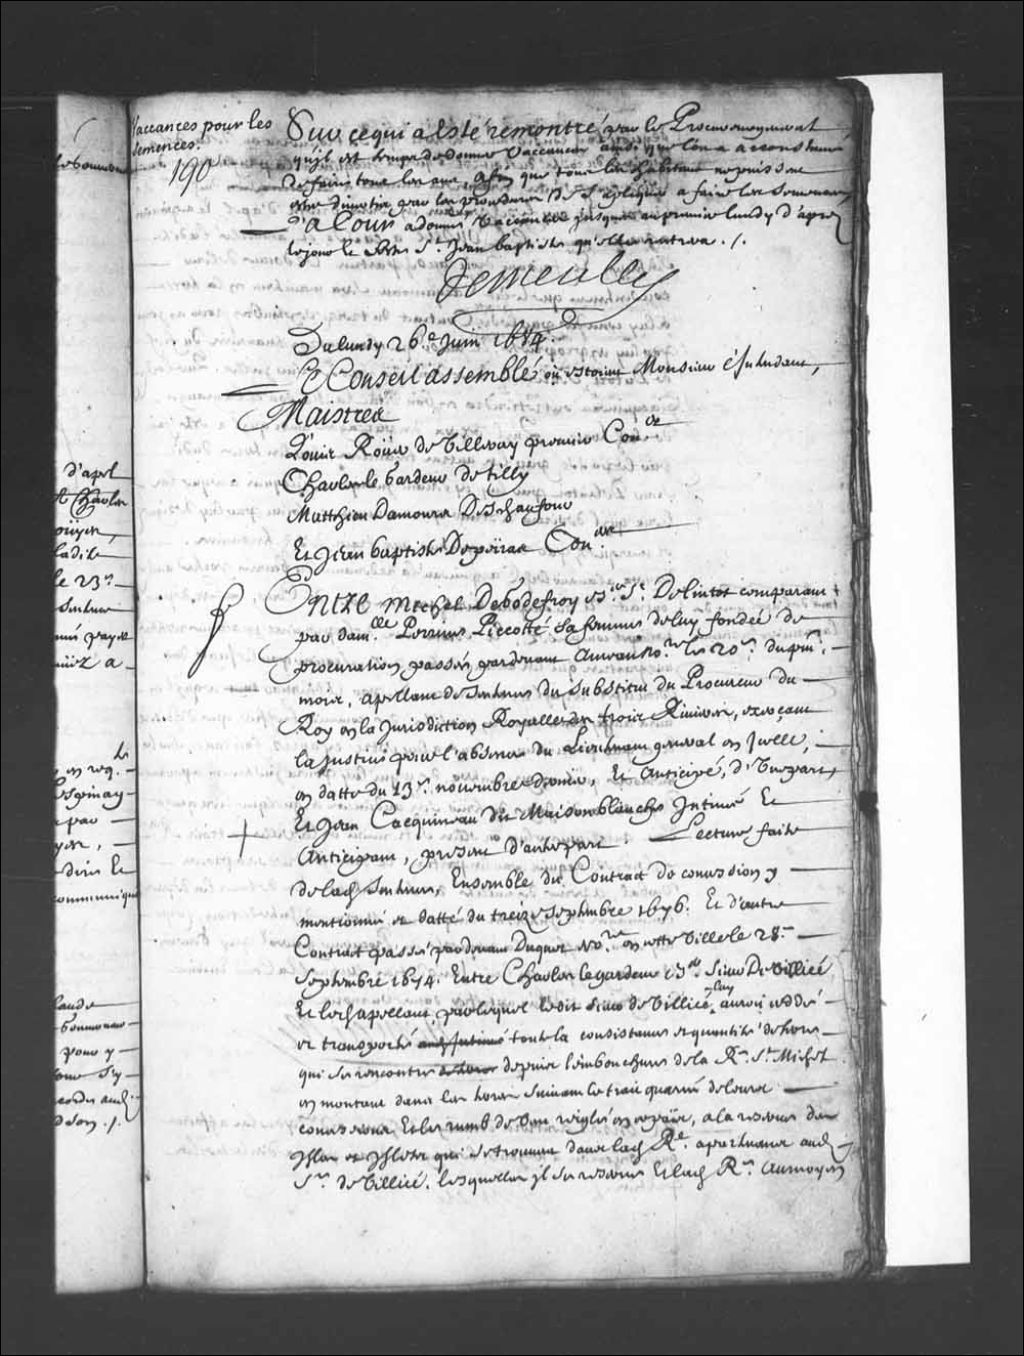 Vaccances pour les
semences.
190
Sur ce qui a esté remontré par le Procureur general
qu'il est temps de donner Vaccances ainsy que l'on a accoustumé
de faire tous les ans, afin que tous les habitans ne puissent
estre divertis par les procedures de s'apliquer a faire les semences
La Cour a donné Vaccances jusques au premier lundy d'apres
le jour de feste St. Jean baptiste qu'elle rentrera ./.
Demeulle
Du lundy 26e. Juin 1684.
Le Conseil assemblé où estoient Monsieur l'Intendant,
Maistres
Louis Roüer de Villeray premier Coner
Charles le Gardeur de Tilly
Matthieu Damours Deschaufour
Et Jean baptiste Depeiras Coners.
Entre Michel Degodefroy Esr. Sr. De lintot comparant
par damlle. Perrine Piccotté sa femme de luy fondée de
procuration passée pardevant Ameau Nore. le 20e. du pnt.
mois, apellant de sentence du Substitut du Procureur du
Roy en la Jurisdiction Royalle des trois Rivieres, exerçant
la justice pour l'absence du Lieutenant general en Icelle,
en datte du 13e. novembre dernier, Et anticipé, d'Une part,
Et Jean Cacquineau dit Maisonblanche Intimé Et
Anticipant, present d'autre part. Lecture faite
de lad. sentence, Ensemble du Contract de concession y
mentionné et datté du treize septembre 1676. Et d'autre
Contract passé pardevant Duquet Nore. en cette Ville le 28e.
Septembre 1674. Entre Charles legardeur Esr. Sieur De Villiers
Et led. apellant, par lequel ledit sieur de Villiers luy auroit cedé
et transporté toute la consistance et quantité de terres
qui se rencontre depuis l'embouchure de la Rre. St. Michel
en montant dans les terres suivant le trait quarré de leurs
concessions Et les rumb de Vent reiglé en ce païs, a la reserve des
Isles et Islets qui se trouvent dans lad. Rre. apartenans aud.
Sr. de Villiers. lesquelles il se reserve Et lad. Rre. au moyen
d'apel
Charles
ladite
le 23e.
en reg.
par
communiqué
pour y